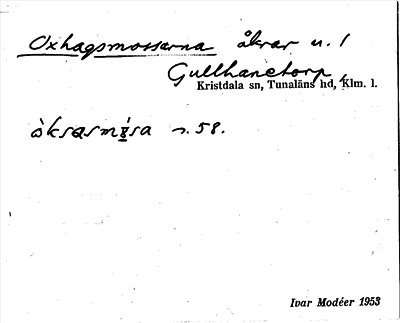 Oxhagsmossarna åkrar u. 1
Gullhanetorp,
Kristdala sn, Tunaläns hd, Klm. l.
s. 58.
Ivar Modéer 1953